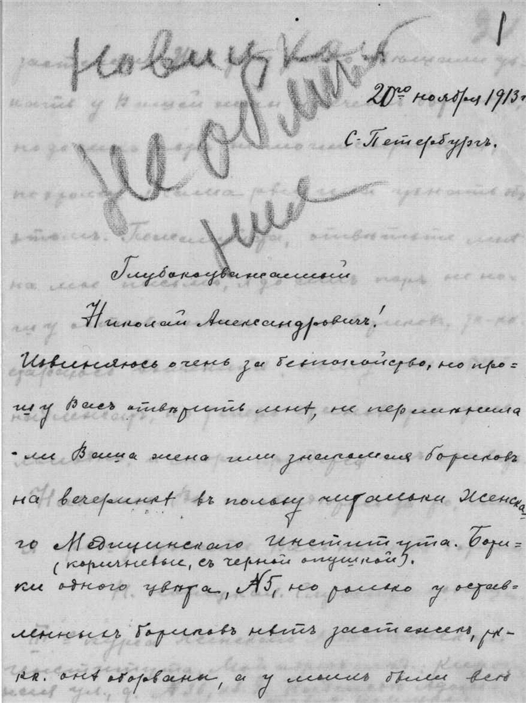 1
Новицкая
не обмен
ная
20го ноября 1913 г.
С-Петербургъ.
Глубокоуважаемый
Николай Александровичъ!
Извиняюсь очень за безпокойство, но про-
шу Васъ отвѣтить мнѣ, не перемѣнила
-ли Ваша жена или знакомая ботиковъ
на вечеринкѣ въ пользу читальни Женска-
го Медицинскаго Института. Боти-
(коричневые, съ черной опушкой).
ки одного цвѣта, №5, но только у остав-
ленныхъ ботиковъ нѣтъ застежекъ, т.
кк. онѣ оборваны, а у моихъ были всѣ